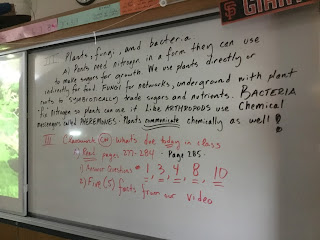 GIANTS
II Plants, fungi, and bacteria
A) Plants need nitrogen in a form they can use
to make sugars for growth. We use plants directly or
indirectly for food. FUNGI for networks, underground with plant
roots to SYMBIOTICALLY trade sugars and nutrients. BACTERIA
fix Nitrogen so plants can use it. Like ARTHROPODS use Chemical
messengers called PHEREMONES, Plants communicate chemically as well!
III Classwork CW - what's due today in class
Read pages 277-284. Page 285.
1) Answer Questions # 1, 3, 4, 8, 10
2) Five (5) facts from our video